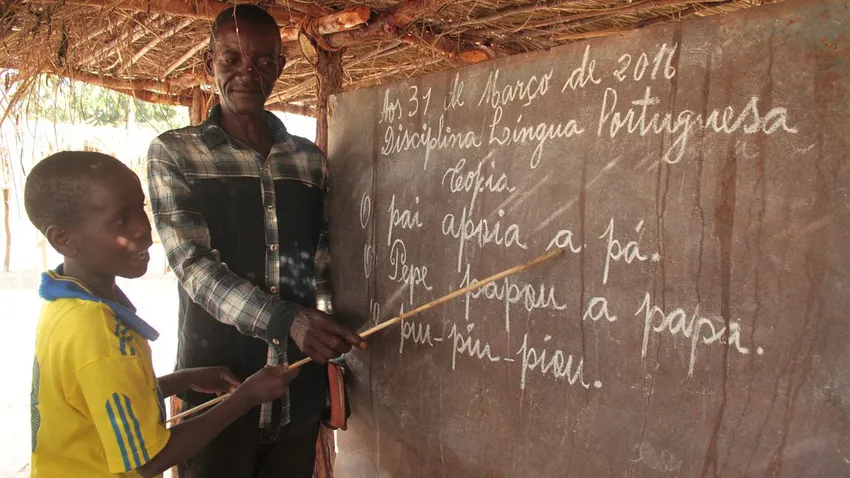 Aos 31 de Março de 2016
Disciplina Língua Portuguesa
Copia
O pai apoia a pá.
O Pepe papou a papa.
O piu-piu-piou.